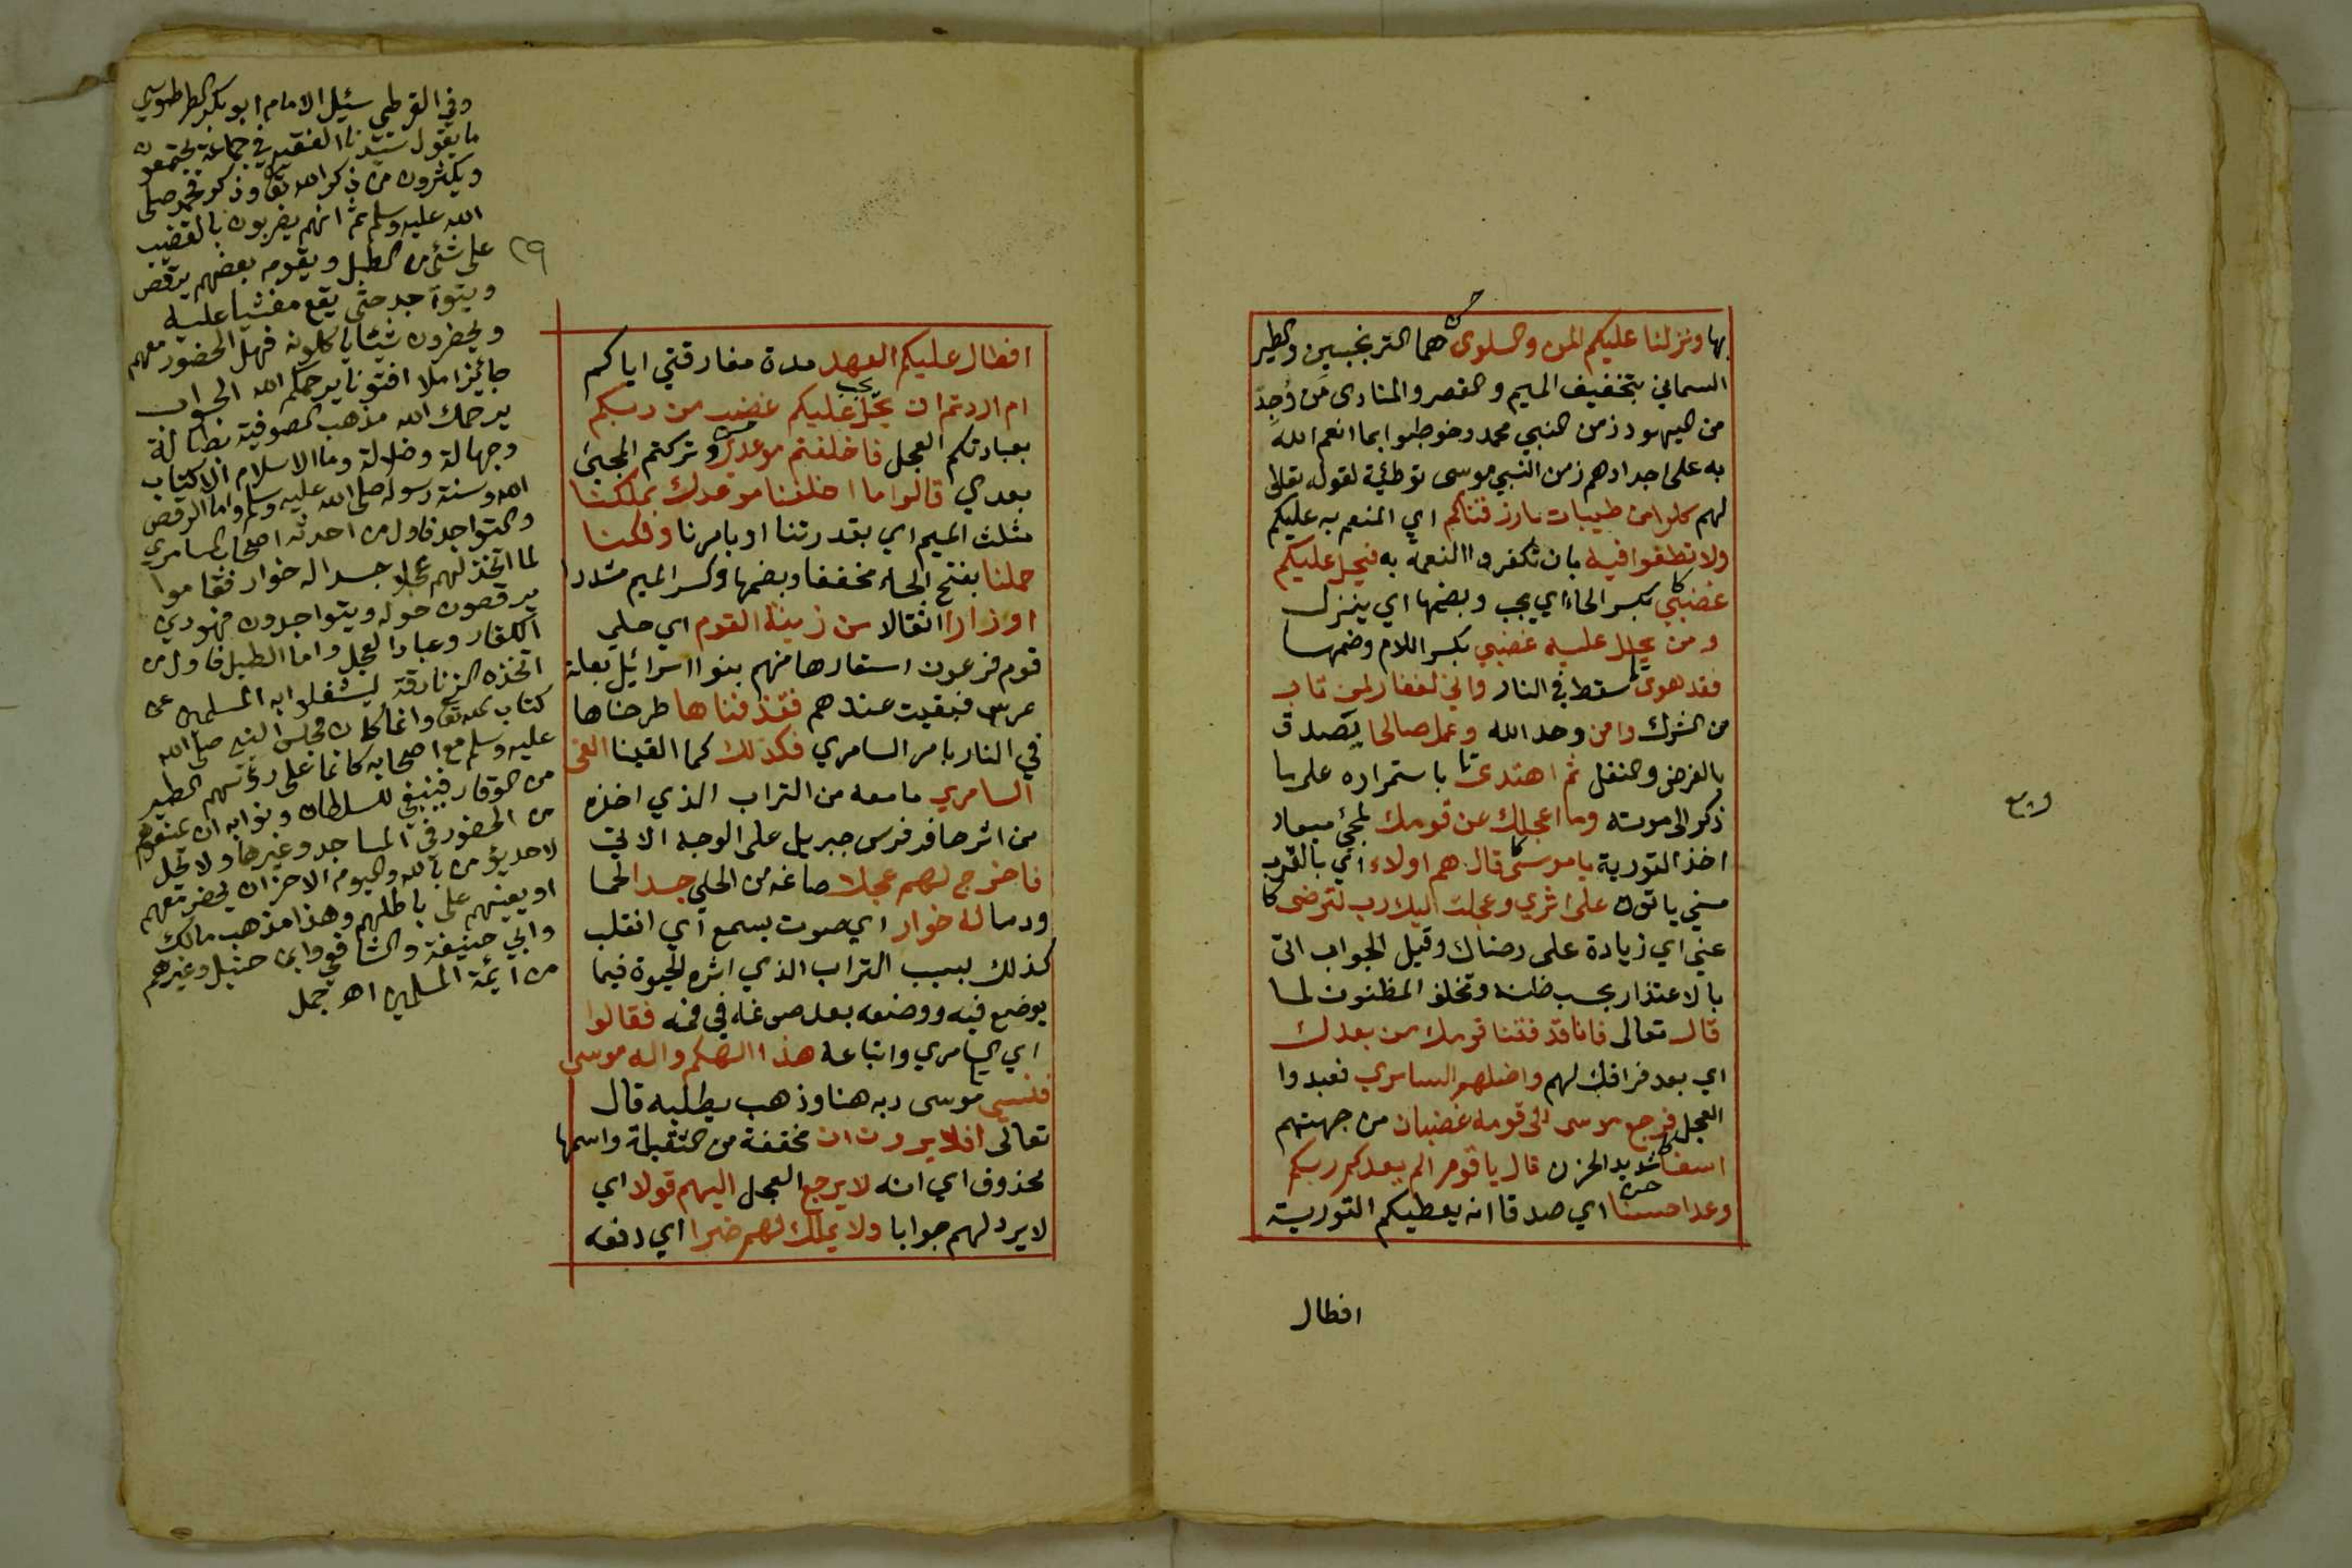 بها ونزلنا عليكم المن والسلوى هما الترنجبين والطير
السماني بتخفيف الميم والقصر والمنادى من وُجِدَ
من اليهود زمن النبي محمد وخوطبوا بما انعم الله
به على اجدادهم زمن النبي موسى توطئة لقوله تعالى
لهم كلوا من طيبات ما رزقناكم اي المنعم به عليكم
ولا تطغوا فيه بان تكفروا النعمة به فيحل عليكم
غضبي بكسر الحاء اي يجب وبضمها اي ينزل
ومن يحلل عليه غضبي بكسر اللام وضمها
فقد هوى سقط في النار واني لغفار لمن تاب
من الشرك وامن وحد الله وعمل صالحا يصدق
بالفرض والنفل ثم اهتدى باستمراره على ما
ذكر الى موته وما اعجلك عن قومك لمجئ ميعاد
اخذ التورية يا موسى قال هم اولاء اي بالقرب
مني ياتون على اثري وعجلت اليك رب لترضى
عني اي زيادة على رضاك وقيل الجواب اتى
بالاعتذار بحسب ظنه وتخلف المظنون لما
قال تعالى فانا قد فتنا قومك من بعدك
اي بعد فراقك لهم واضلهم السامري فعبدوا
العجل فرجع موسى الى قومه غضبان من جهتهم
اسفا شديد الحزن قال يا قوم الم يعدكم ربكم
وعدا حسنا اي صدقا انه يعطيكم التورية
افطال
٢٩
افطال عليكم العهد مدة مفارقتي اياكم
ام اردتم ان يحل يجب عليكم غضب من ربكم
بعبادتكم العجل فاخلفتم موعدي وتركتم المجئ
بعدي قالوا ما اخلفنا موعدك بملكنا
مثلث الميم اي بقدرتنا او بامرنا ولكنا
حملنا بفتح الحاء مخففا وبضمها وكسر الميم مشددا
اوزارا اثقالا من زينة القوم اي حلي
قوم فرعون استعارها منهم بنوا اسرائيل بعلة
عرس فبقيت عندهم فقذفناها طرحناها
في النار بامر السامري فكذلك كما القينا القى
السامري ما معه من التراب الذي اخذه
من اثر حافر فرس جبريل على الوجه الاتي
فاخرج لهم عجلا صاغه من الحلي جسدا لحما
ودما له خوار اي صوت يسمع اي انقلب
كذلك بسبب التراب الذي اثره الحيوة فيما
يوضع فيه ووضعه بعد صوغه في فمه فقالوا
اي السامري واتباعه هذا الهكم واله موسى
فنسي موسى ربه هنا وذهب يطلبه قال
تعالى افلا يرون ان مخففة من الثقيلة واسمها
محذوف اي انه لا يرجع العجل اليهم قولا اي
لا يرد لهم جوابا ولا يملك لهم ضرا اي دفعه
وفي القرطبي سئيل الامام ابو بكر الطرطوسي
ما يقول سيدنا الفقيه في جماعة يجتمعون
ويكثرون من ذكر الله تعا وذكر محمد صلى
الله عليه وسلم ثم انهم يضربون بالقضيب
على شئ من الطبل ويقوم بعضهم يرقص
ويتواجد حتى يقع مغشيا عليه
ويحضرون شيئا ياكلونه فهل الحضور معهم
جائيز ام لا افتونا يرحمكم الله الجواب
يرحمك الله مذهب الصوفية بطالة
وجهالة وضلالة وما الاسلام الا كتاب
الله وسنة رسوله صلى الله عليه وسلم واما الرقص
والتواجد فاول من احدثه اصحاب السامري
لما اتخذ لهم عجلا جسدا له خوار فقاموا
يرقصون حوله ويتواجدون فهو دين
الكفار وعباد العجل واما الطبل فاول من
اتخذه الزنادقة ليشغلوا به المسلمين عن
كتاب الله تعا وانما كان مجلس النبي صلى الله
عليه وسلم مع اصحابه كانما على رؤسهم الطير
من الوقار فينبغي للسلطان ونوابه ان يمنعوهم
من الحضور في المساجد وغيرها ولا يحل
لاحد يؤمن بالله واليوم الاخر ان يحضر معهم
او يعينهم على باطلهم وهذا مذهب مالك
وابي حنيفة والشافعي وابن حنبل وغيرهم
من ايمة المسلمين اهـ جمل